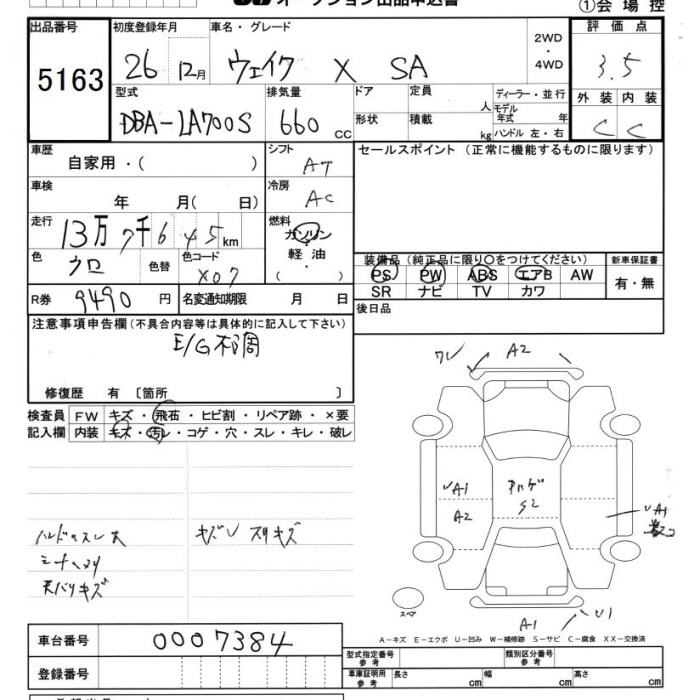 オークション出品申込書
①会場控
出品番号 5163
初度登録年月 26 12月
車名・グレード ウェイク X SA
2WD
・
4WD
評価点 3.5
型式 DBA-LA700S
排気量 660 cc
ドア
形状
定員 人
積載 kg
ディーラー・並行
モデル年式 年
ハンドル 左・右
外装 内装
C C
車歴 自家用・( )
シフト AT
セールスポイント (正常に機能するものに限ります)
車検 年 月( 日)
冷房 AC
走行 13万7千645km
燃料
ガソリン
軽油
・
( )
色 クロ 色替
色コード X07
装備品 (純正品に限り○をつけてください)
PS PW ABS エアB AW
SR ナビ TV カワ
新車保証書
有・無
R券 9490 円
名変通知期限 月 日
後日品
注意事項申告欄(不具合内容等は具体的に記入して下さい)
E/G不調
修復歴 有 〔箇所 〕
検査員 FW キズ・飛石・ヒビ割・リペア跡・×要
記入欄 内装 キズ・汚レ・コゲ・穴・スレ・キレ・破レ
ワレ A2
UA1
A2
S2
UA1
ハンドルスレ大
キズU スリキズ
天バリキズ
スペア
A1 U1
A-キズ E-エクボ U-凹み W-補修跡 S-サビ C-腐食 XX-交換済
車台番号 0007384
登録番号
型式指定番号
参考
類別区分番号
参考
車庫証明用
参考
長さ cm 幅 cm 高さ cm